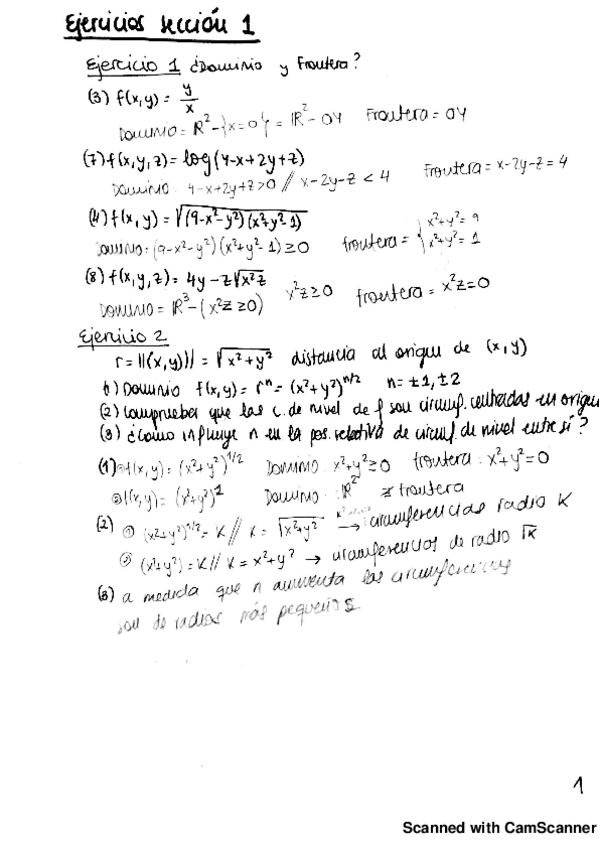 Ejercicios sección 1
Ejercicio 1 ¿Dominio y Frontera?
(3) f(x,y) = y/x
Dominio = R² - {x=0} = R² - OY Frontera = OY
(7) f(x,y,z) = log(4-x+2y+z)
Dominio: 4-x+2y+z>0 // x-2y-z < 4 Frontera = x-2y-z = 4
(4) f(x,y) = √((9-x²-y²)(x²+y²-1))
Dominio: (9-x²-y²)(x²+y²-1) ≥ 0 frontera = { x²+y² = 9 x²+y² = 1
(8) f(x,y,z) = 4y - z√(x²z)
Dominio = R³ - (x²z ≥ 0) x²z ≥ 0 frontera = x²z = 0
Ejercicio 2
r = ||(x,y)|| = √(x²+y²) distancia al origen de (x,y)
1) Dominio f(x,y) = rⁿ = (x²+y²)^(n/2) n = ±1, ±2
(2) Comprueber que las c. de nivel de f son circunf. centradas en origen
(3) ¿Cómo influye n en la pos. relativa de circunf. de nivel entre sí?
(1) ① f(x,y) = (x²+y²)^(1/2) Dominio: x²+y² ≥ 0 frontera: x²+y² = 0
② f(x,y) = (x²+y²)¹ Dominio: R² ∄ frontera
(2) ① (x²+y²)^(1/2) = K // K = √(x²+y²) → circunferencias radio K
② (x²+y²) = K // K = x²+y² → circunferencias de radio √K
(3) a medida que n aumenta las circunferencias
son de radios más pequeños.
1
Scanned with CamScanner